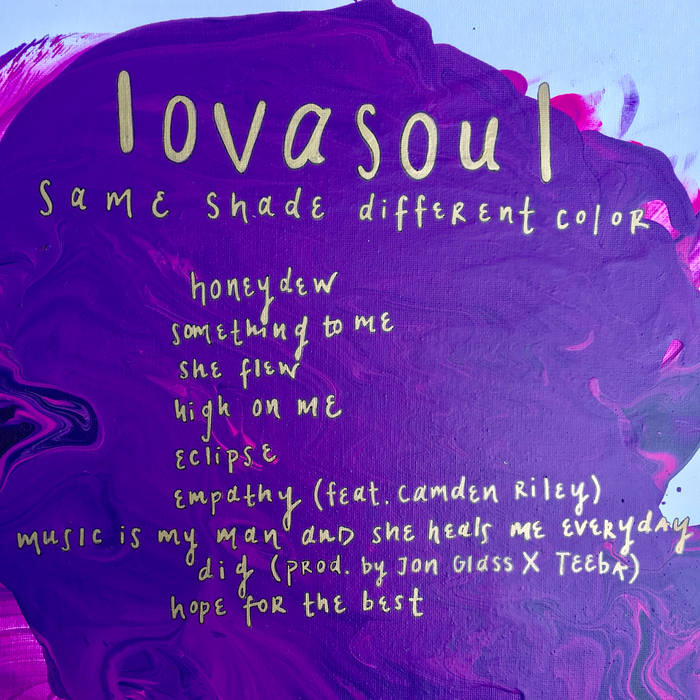 lovasoul
same shade different color
honeydew
something to me
she flew
high on me
eclipse
empathy (feat. camden Riley)
music is my man and she heals me everyday
dig (prod. by Jon Glass X TEEBA)
hope for the best